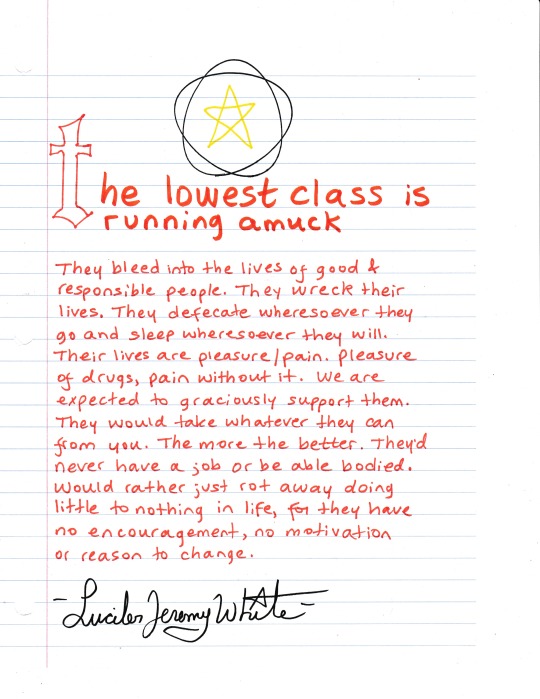 The lowest class is
running amuck
They bleed into the lives of good &
responsible people. They wreck their
lives. They defecate wheresoever they
go and sleep wheresoever they will.
Their lives are pleasure/pain. Pleasure
of drugs, pain without it. We are
expected to graciously support them.
They would take whatever they can
from you. The more the better. They'd
never have a job or be able bodied.
Would rather just rot away doing
little to nothing in life, for they have
no encouragement, no motivation
or reason to change.
-Lucifer Jeremy White-